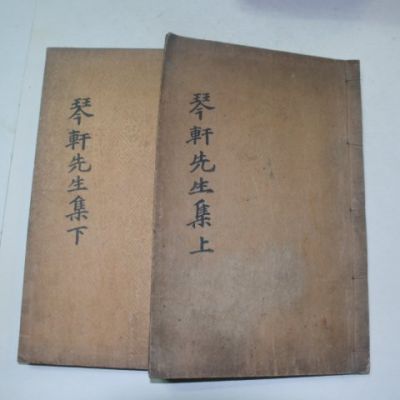 琴軒先生集上
琴軒先生集下